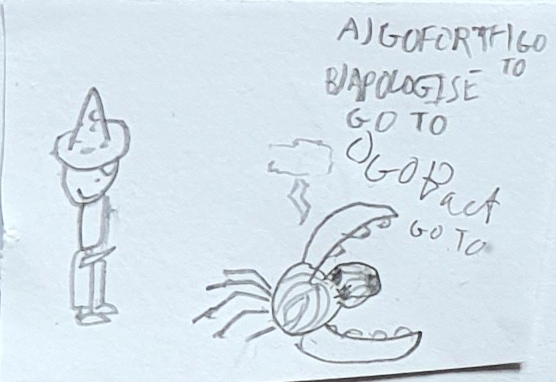 A) GO FORTH GO
TO
B) APOLOGISE
GO TO
C) GO Back
GO TO